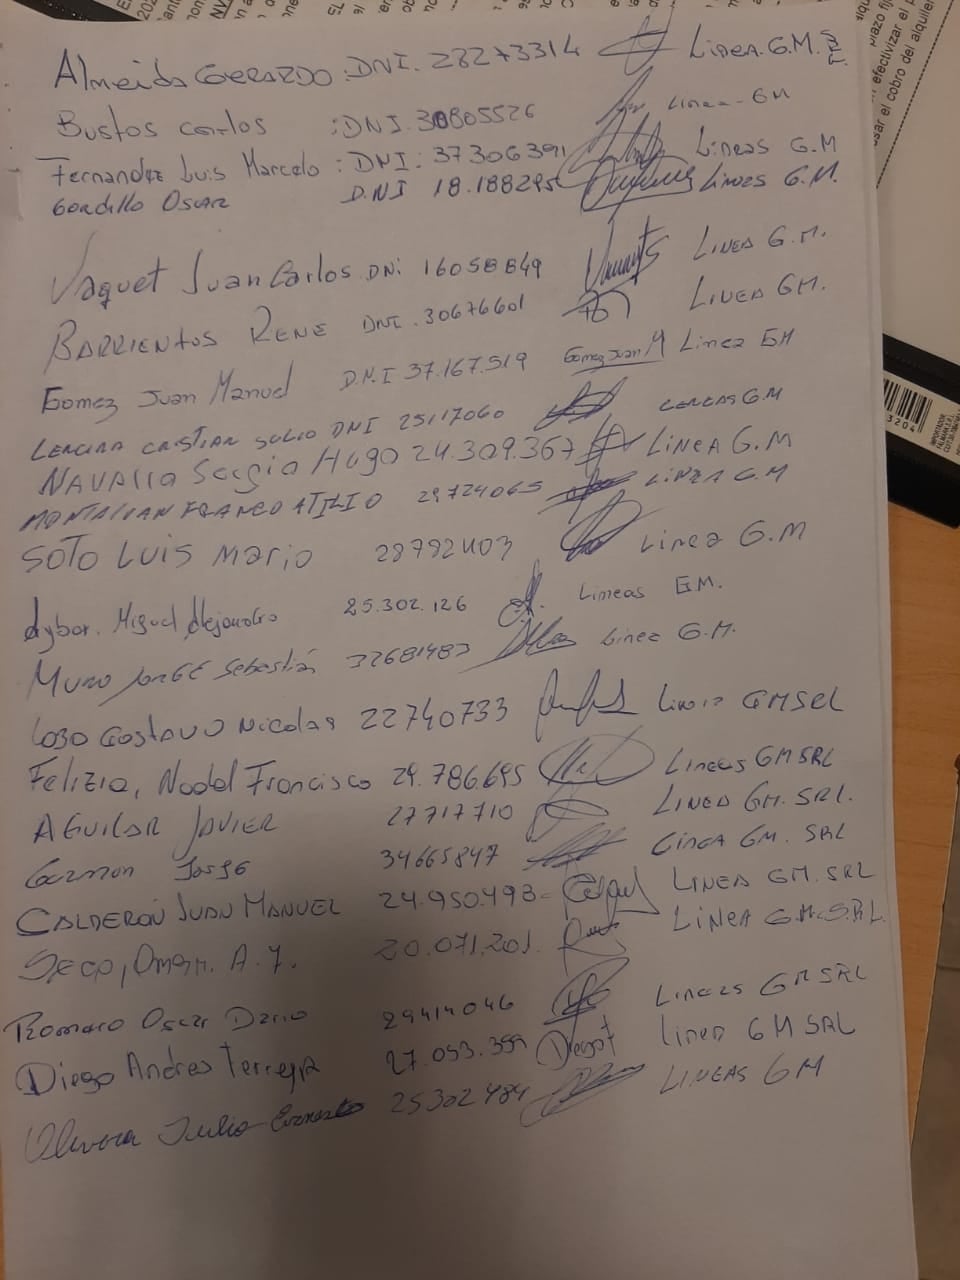 Almeida Gerardo : DNI. 28273314 Linea G.M. SRL
Bustos Carlos : DNI. 30805526 Linea - GM
Fernandez Luis Marcelo : DNI: 37306391 Lineas G.M
Gordillo Oscar D.N.I 18.188295 Lineas G.M.
Vaquet Juan Carlos DNi 16058849 LINEA G.M.
BARRIENTOS RENE DNI. 30676601 LINEA GM.
Gomez Juan Manuel D.N.I 37.167.519 Gomez Juan M Linea GM
CRISTIAN JULIO DNI 25117060 G.M
NAVALLO Sergio Hugo 24.309.367 LiNEA G.M
FRANCO ATILIO 29724065 LINEA G.M
SOTO LUIS Mario 28792403 Linea G.M
Aybar. Miguel Alejandro 25.302.126 Lineas GM.
Muro JorGE Sebastián 32681483 Linea G.M.
LOBO GUSTAVO Nicolas 22740733 Linea GMSRL
Felizia, Nadal Francisco 29.786.695 Lineas GM SRL
AGUILAR JAVIER 27717710 LINEA GM. SRL.
Garzon Jorge 34665847 Linea GM. SRL
CALDERON JUAN MANUEL 24.950.493- LINEA GM. SRL
Seco, Omar. A. 20.071.201. LINEA GM.S.R.L.
Romero Oscar Dario 29414046 Lineas GM SRL
Diego Andres Terrera 27.053.399 Diego T Linea GM SRL
Olivera Julio Ernesto 25302484 LINEAS GM